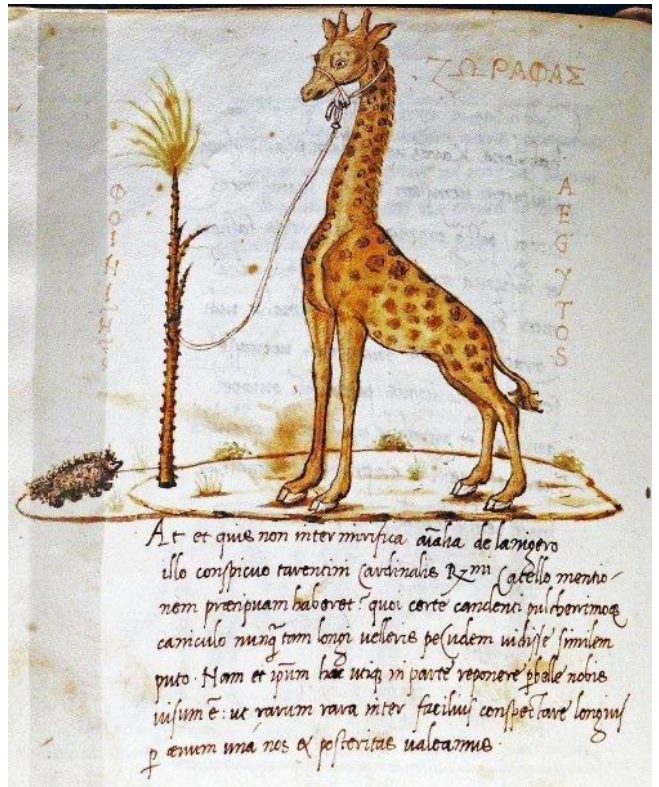 ΖΩΡΑΦΑΣ
AEGYTOS
At et quis non inter mirifica aĩalia de lanigero
illo conspicuo tarentini Cardinalis Rx mi Catello mentio-
nem præcipuam haberet? quoi certe candenti pulcherrimoq;
caniculo nunq̃ tam longi velleris pecudem vidisse similem
puto. Nam et ipm̃ hac utiq; in parte reponere ꝑbelle nobis
visum ē: ut rarum rara inter facilius conspectare longius
ꝑ ævum una nos & posteritas valeamus.